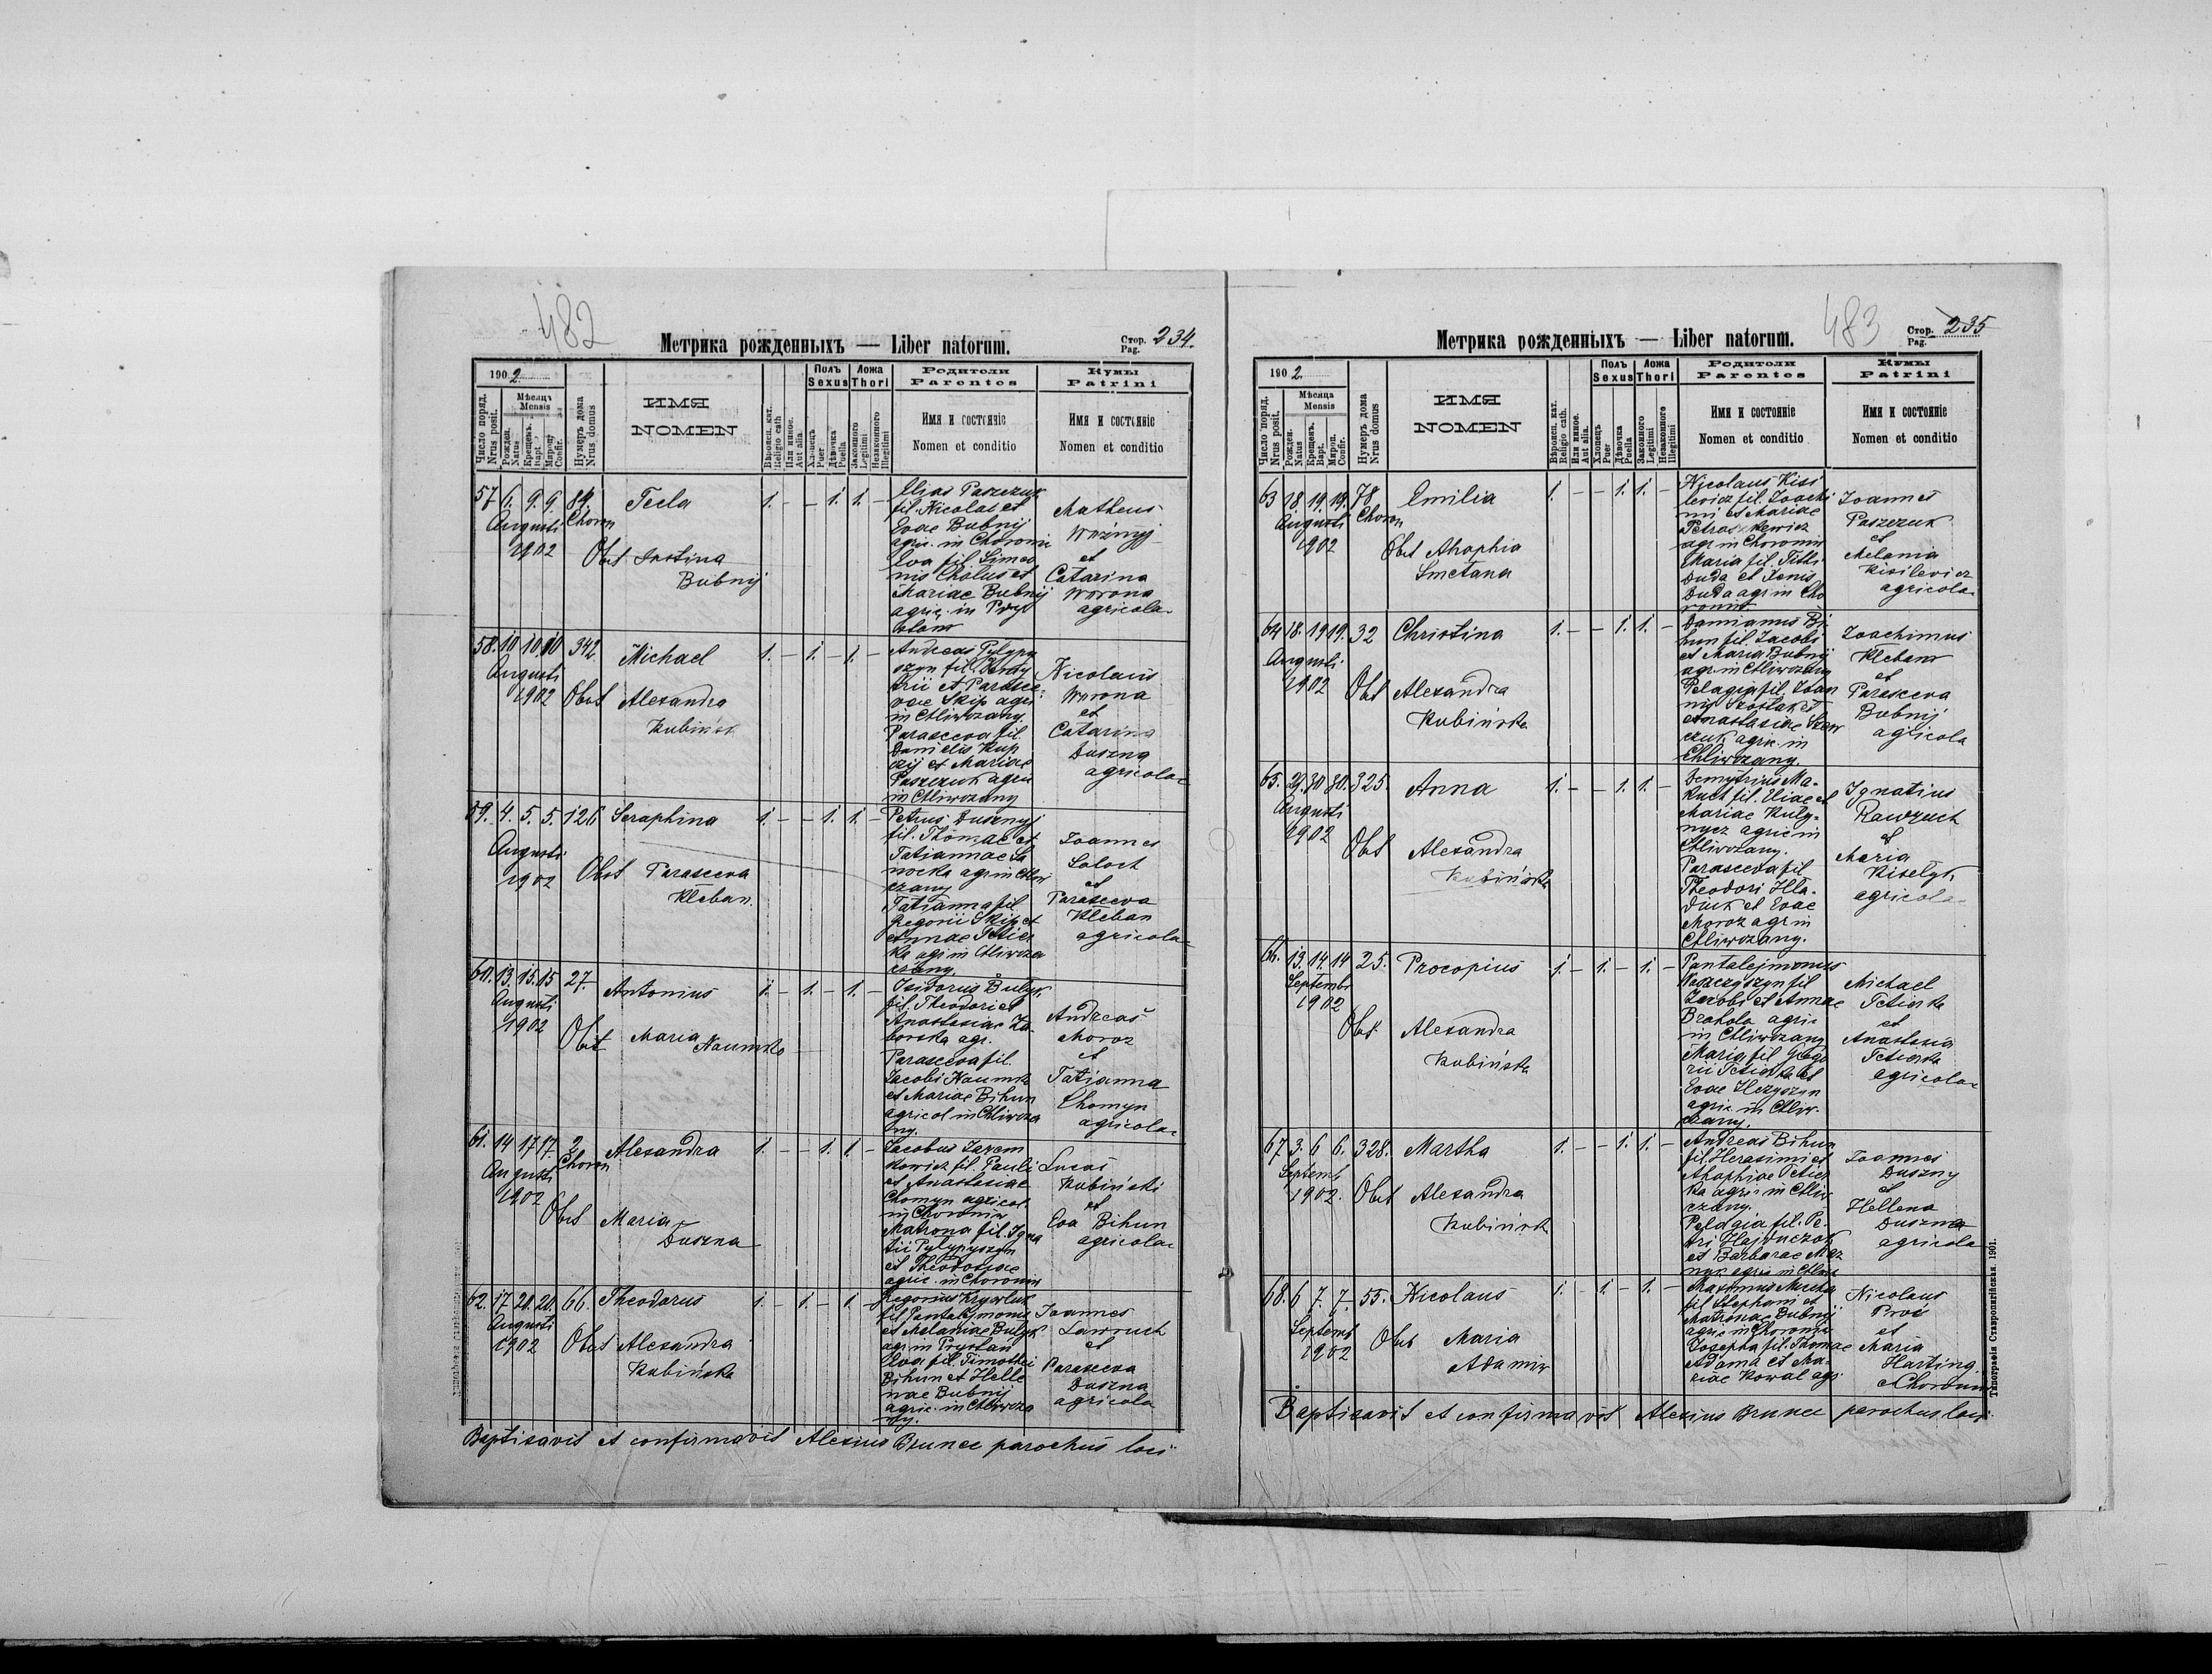 482
Метрика рожденныхъ — Liber natorum.
Стор. 234.
Pag.
190 2
Мѣсяцъ
Mensis
Число поряд.
Nrus posit.
Рожден.
Natus
Крещенъ.
Bapt.
Мироп.
Confir.
Нумеръ дома
Nrus domus
ИМЯ
NOMEN
Вѣроисп. кат.
Religio cath
Или иное.
Aut alia.
Полъ
Sexus
Хлопецъ
Puer
Дѣвочка
Puella
Ложа
Thori
Законного
Legitimi
Незаконного
Illegitimi
Родители
Parentes
Имя и состояніе
Nomen et conditio
Кумы
Patrini
Имя и состояніе
Nomen et conditio
57 6. 9. 9. 84.
Augusti Choron
1902
Tecla
Obst Justina
Bubnij
1. - - 1. 1. -
Elias Paszczuk
fil. Nicolai et
Evae Bubnij
agric. in Choronie
Eva fil. Simeo
nis Cholus et
Mariae Bubnij
agric. in Prys
Matheus
Woźnyj
et
Catarina
Worona
agricolae
58. 10 10 10 342
Augusti
1902
Michael
Obst Alexandra
Kubińsk
1. - 1. - 1. -
Andreas Pylypy
szyn fil. Demy
trii et Parasce
vae Skip agri
in Chliwczany
Parasceva fil.
Danielis Kup
czij et Mariae
Paszczuk agric
in Chliwczany
Nicolaus
Worona
et
Catarina
Duszna
agricolae
59. 4. 5. 5. 126
Augusti
1902
Seraphina
Obst Parasceva
Kleban.
1. - - 1. 1. -
Petrus Dusznyj
fil. Thomae et
Tatiannae Sa
nocka agr in Chliw
czany
Tatianna fil
Gregorii Skip et
Annae Tetier
ka agr in Chliwcza
czany.
Joannes
Soloch
et
Parasceva
Kleban
agricolae
60. 13. 15. 15 27.
Augusti
1902
Antonius
Obst Maria Naumko
1. - 1. - 1. -
Isidorus Bulyk
fil. Theodori et
Anastasiae Za
borska agr.
Parasceva fil.
Jacobi Naumko
et Mariae Bihun
agricol in Chliwcza
ny.
Andreas
Moroz
et
Tatianna
Chomyn
agricolae
61. 14 17 17. 2
Augusti Choron
1902
Alexandra
Obst Maria
Duszna
1. - - 1. 1. -
Jacobus Jarem
kowicz fil. Pauli
et Anastasiae
Chomyn agricol.
in Choronin
Matrona fil. Igna
tii Pylypyszyn
et Theodosiae
agric. in Choronin
Lucas
Kubiński
et
Eva Bihun
agricolae
62. 17 20. 20. 66.
Augusti
1902
Theodorus
Obst Alexandra
Kubińska
1. - 1. - 1. -
Gregorius Krywluk
fil Pantalejmonis
et Melaniae Bulyk
agr in Prystan
Eva fil. Timothei
Bihun et Helle
nae Bubnij
agric. in Chliwcza
ny.
Joannes
Lawruch
et
Parasceva
Duszna
agricola
Baptisavit et confirmavit Alexius Brunec parochus loci
483
Метрика рожденныхъ — Liber natorum.
Стор. 235
Pag.
190 2.
Мѣсяца
Mensis
Число поряд.
Nrus posit.
Рожден.
Natus
Крещенъ.
Bapt.
Мироп.
Confir.
Нумеръ дома
Nrus domus
ИМЯ
NOMEN
Вѣроисп. кат.
Religio cath.
Или иное.
Aut alia.
Полъ
Sexus
Хлопецъ
Puer
Дѣвочка
Puella
Ложа
Thori
Законного
Legitimi
Незаконного
Illegitimi
Родители
Parentes
Имя и состояніе
Nomen et conditio
Кумы
Patrini
Имя и состояніе
Nomen et conditio
63 18. 19. 19. 78
Augusti Choron
1902
Emilia
Obst Ahaphia
Smetana
1. - - 1. 1. -
Nicolaus Kisi
levicz fil. Joachi
mi et Mariae
Petraszkewicz
agr in Choronin
Maria fil. Titki
Duda et Xenis
Duda agr in Cho
ronin
Joannes
Paszczuk
et
Melania
Kisilevicz
agricolae
64 18. 19 19. 32
Augusti
1902
Christina
Obst Alexandra
Kubińska
1. - - 1. 1. -
Damianus Bi
hun fil. Jacobi
et Maria Bubnij
agr. in Chliwczany
Pelagia fil. Joan
nis Szostak et
Anastasiae Szew
czuk agric. in
Chliwczany.
Joachimus
Kleban
et
Parasceva
Bubnij
agricola
65. 29. 30 30. 325.
Augusti
1902
Anna
Obst Alexandra
Kubińska
1. - - 1. 1. -
Demytrius Ma-
kuch fil. Eliae et
Mariae Kuly-
nycz agric in
Chliwczany.
Parasceva fil
Theodori Hla-
diuk et Evae
Moroz agr in
Chliwczany.
Ignatius
Rawruch
et
Maria
Kiselyk
agricolae
66. 13. 14. 14 25.
Septembr
1902
Procopius
Obst Alexandra
Kubińska
1. - 1. - 1. -
Pantalejmonus
fil
Jacobi et Annae
Brahola agric
in Chliwczany
Maria fil Grego
rii Tetierka et
Evae Hryszyn
agric in Chliw
czany.
Michael
Tetierka
et
Anastasia
Tetierka
agricolae
67 3. 6 6. 328.
Septemb
1902.
Martha
Obst Alexandra
Kubińsk
1. - - 1. 1. -
Andreas Bihun
fil. Herasimi et
Ahaphiae Tetier
ka agric in Chliw
czany.
Pelagia fil. Pe-
tri Hajduczok
et Barbarae Maz
nyk agric in Chliw
Joannes
Duszny
et
Hellena
Duszna
agricola
68. 6 7. 7. 55.
Septemb
1902
Nicolaus
Obst Maria
Adamiw
1. - 1. - 1. -
Maximus Mucha
fil Stephani et
Matronae Bubnij
agric in Choronin
Josepha fil. Thomae
Adama et Ma-
riae Kowal agr.
Nicolaus
Proć
et
Maria
Harting.
Choronin
Baptisavit et confirmavit Alexius Brunec parochus loci.
Типографія Ставропигійская. 1901.